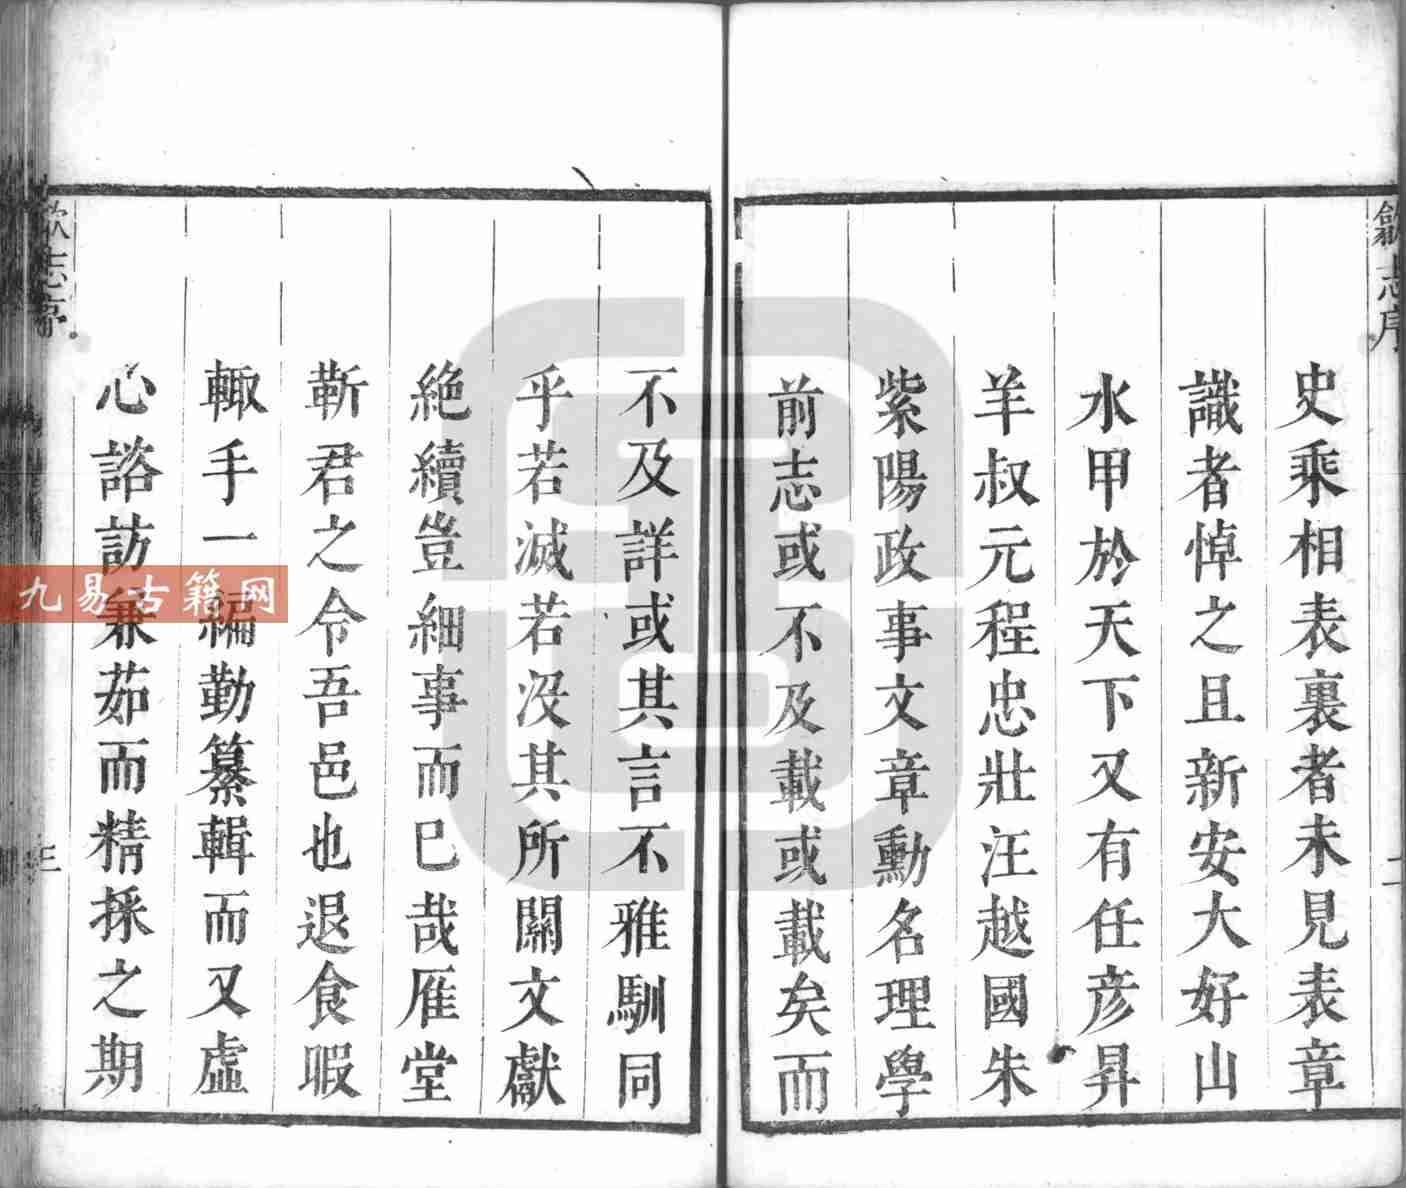 歙志序
史乘相表裏者未見表章
識者悼之且新安大好山
水甲於天下又有任彦昇
羊叔元程忠壯汪越國朱
紫陽政事文章勳名理學
前志或不及載或載矣而
二
不及詳或其言不雅馴同
乎若滅若没其所關文獻
絶續豈細事而已哉雁堂
靳君之令吾邑也退食暇
輙手一編勤纂輯而又虛
心諮訪兼茹而精採之期
歙志序
三
九易古籍网